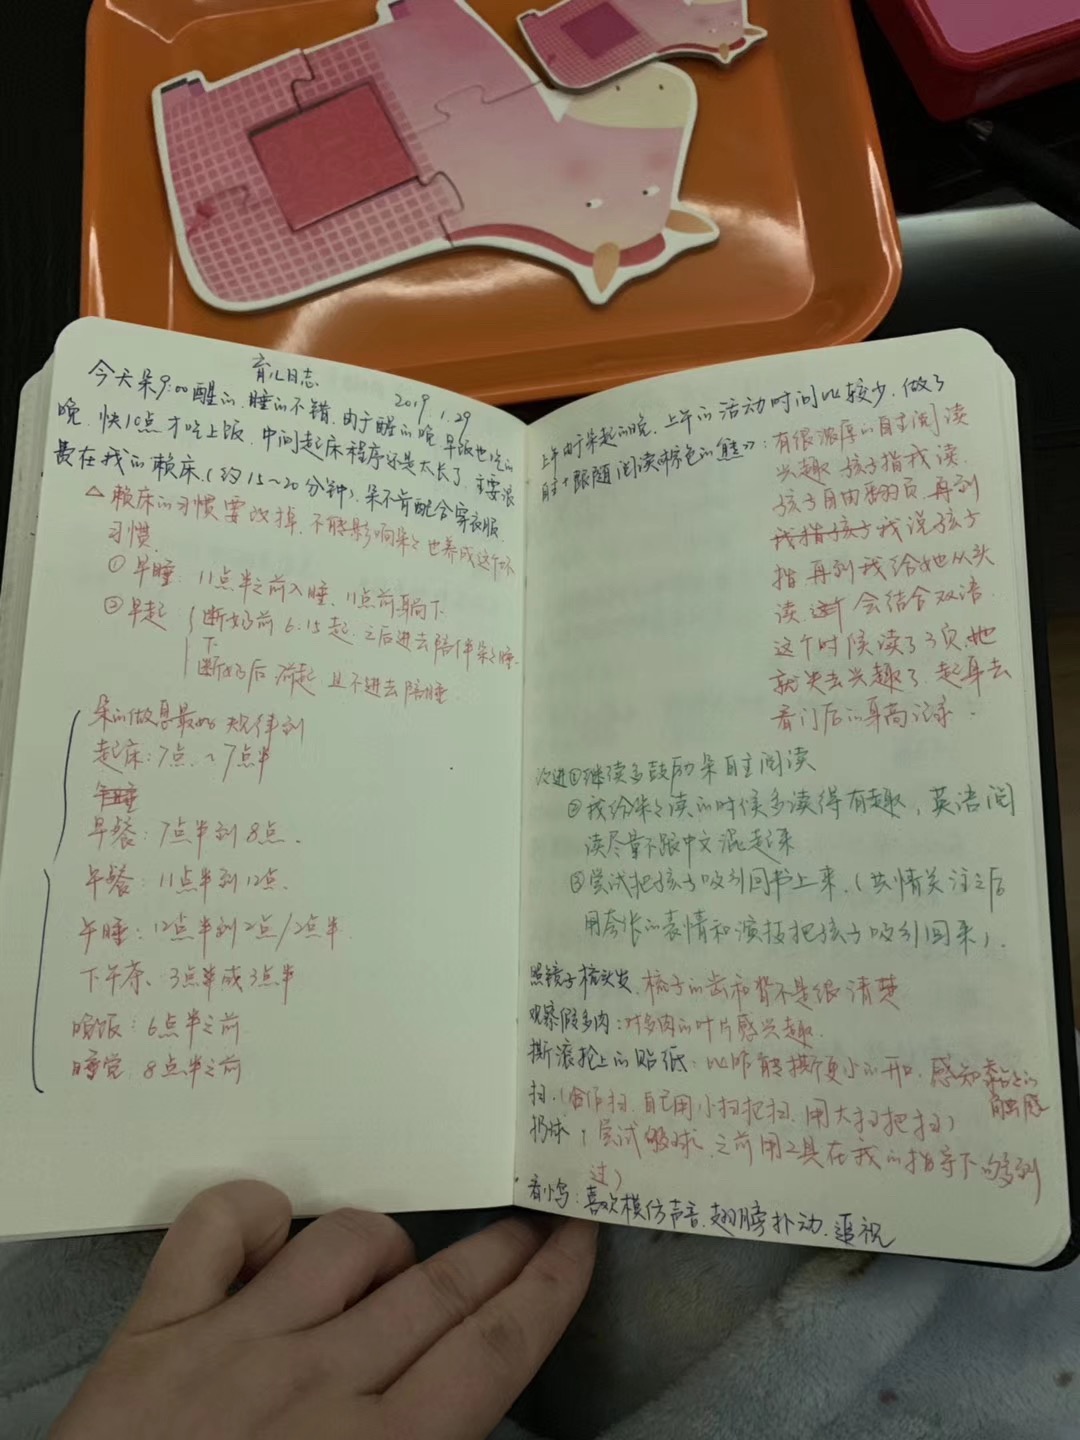 育儿日志
2019.1.29
今天朵9:00醒的,睡的不错,由于醒的晚,早饭也吃的
晚,快10点才吃上饭,中间起床程序还是太长了,主要浪
费在我的赖床(约15~20分钟),朵不肯配合穿衣服
△赖床的习惯要改掉,不能影响朵朵也养成这个坏
习惯.
①早睡: 11点半之前入睡,11点前躺下
②早起 断奶前6:15起,之后进去陪伴朵朵睡
断奶后 起 且不进去陪睡
朵的作息最好规律到
起床:7点~7点半
午睡
早餐:7点半到8点.
午餐:11点半到12点.
午睡:12点半到2点/2点半
下午茶:3点半或3点半
晚饭:6点半之前
睡觉:8点半之前
上午由于朵起的晚,上午的活动时间比较少,做了
自主+跟随阅读《棕色的熊》:有很浓厚的自主阅读
兴趣 孩子指我读.
孩子自由翻页,再到
我指孩子我说孩子
指 再到我给她从头
读. 会结合双语.
这个时候读了3页,她
就失去兴趣了,起身去
看门后的身高记录.
改进①继续多鼓励朵自主阅读
②我给朵朵读的时候多读得有趣,英语阅
读尽量不跟中文混起来
③尝试把孩子吸引回书上来,(共情关注之后
用夸张的表情和演技把孩子吸引回来).
照镜子梳头发,梳子的齿和背不是很清楚
观察假多肉:对多肉的叶片感兴趣.
撕滚轮上的贴纸:比昨能撕更小的开口,感知黏黏的
触感
扫.(合作扫.自己用小扫把扫.用大扫把扫)
扔球:尝试够球,之前用工具在我的指导下够到
过)
看小鸟:喜欢模仿声音.翅膀扑动.追视